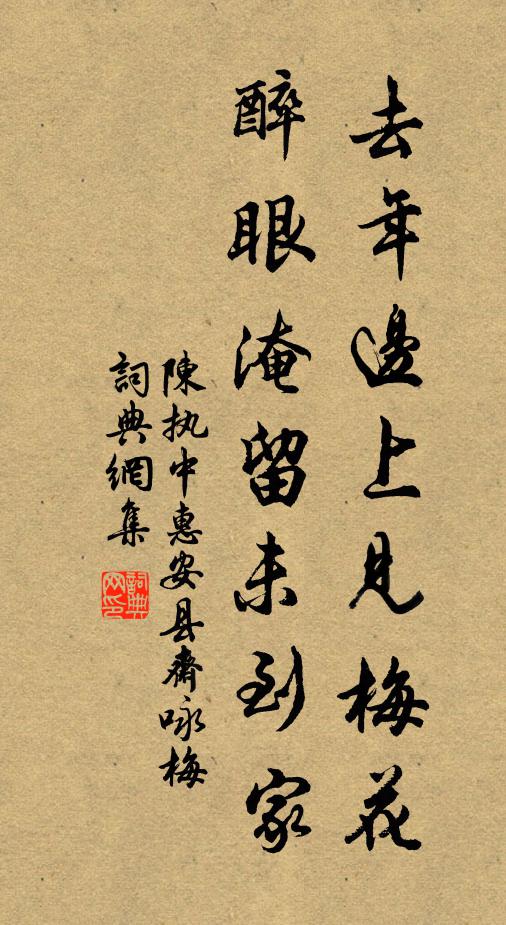 去年邊上見梅花
醉眼淹留未到家
陳执中惠安县齋咏梅
詞典網集
詞典网印